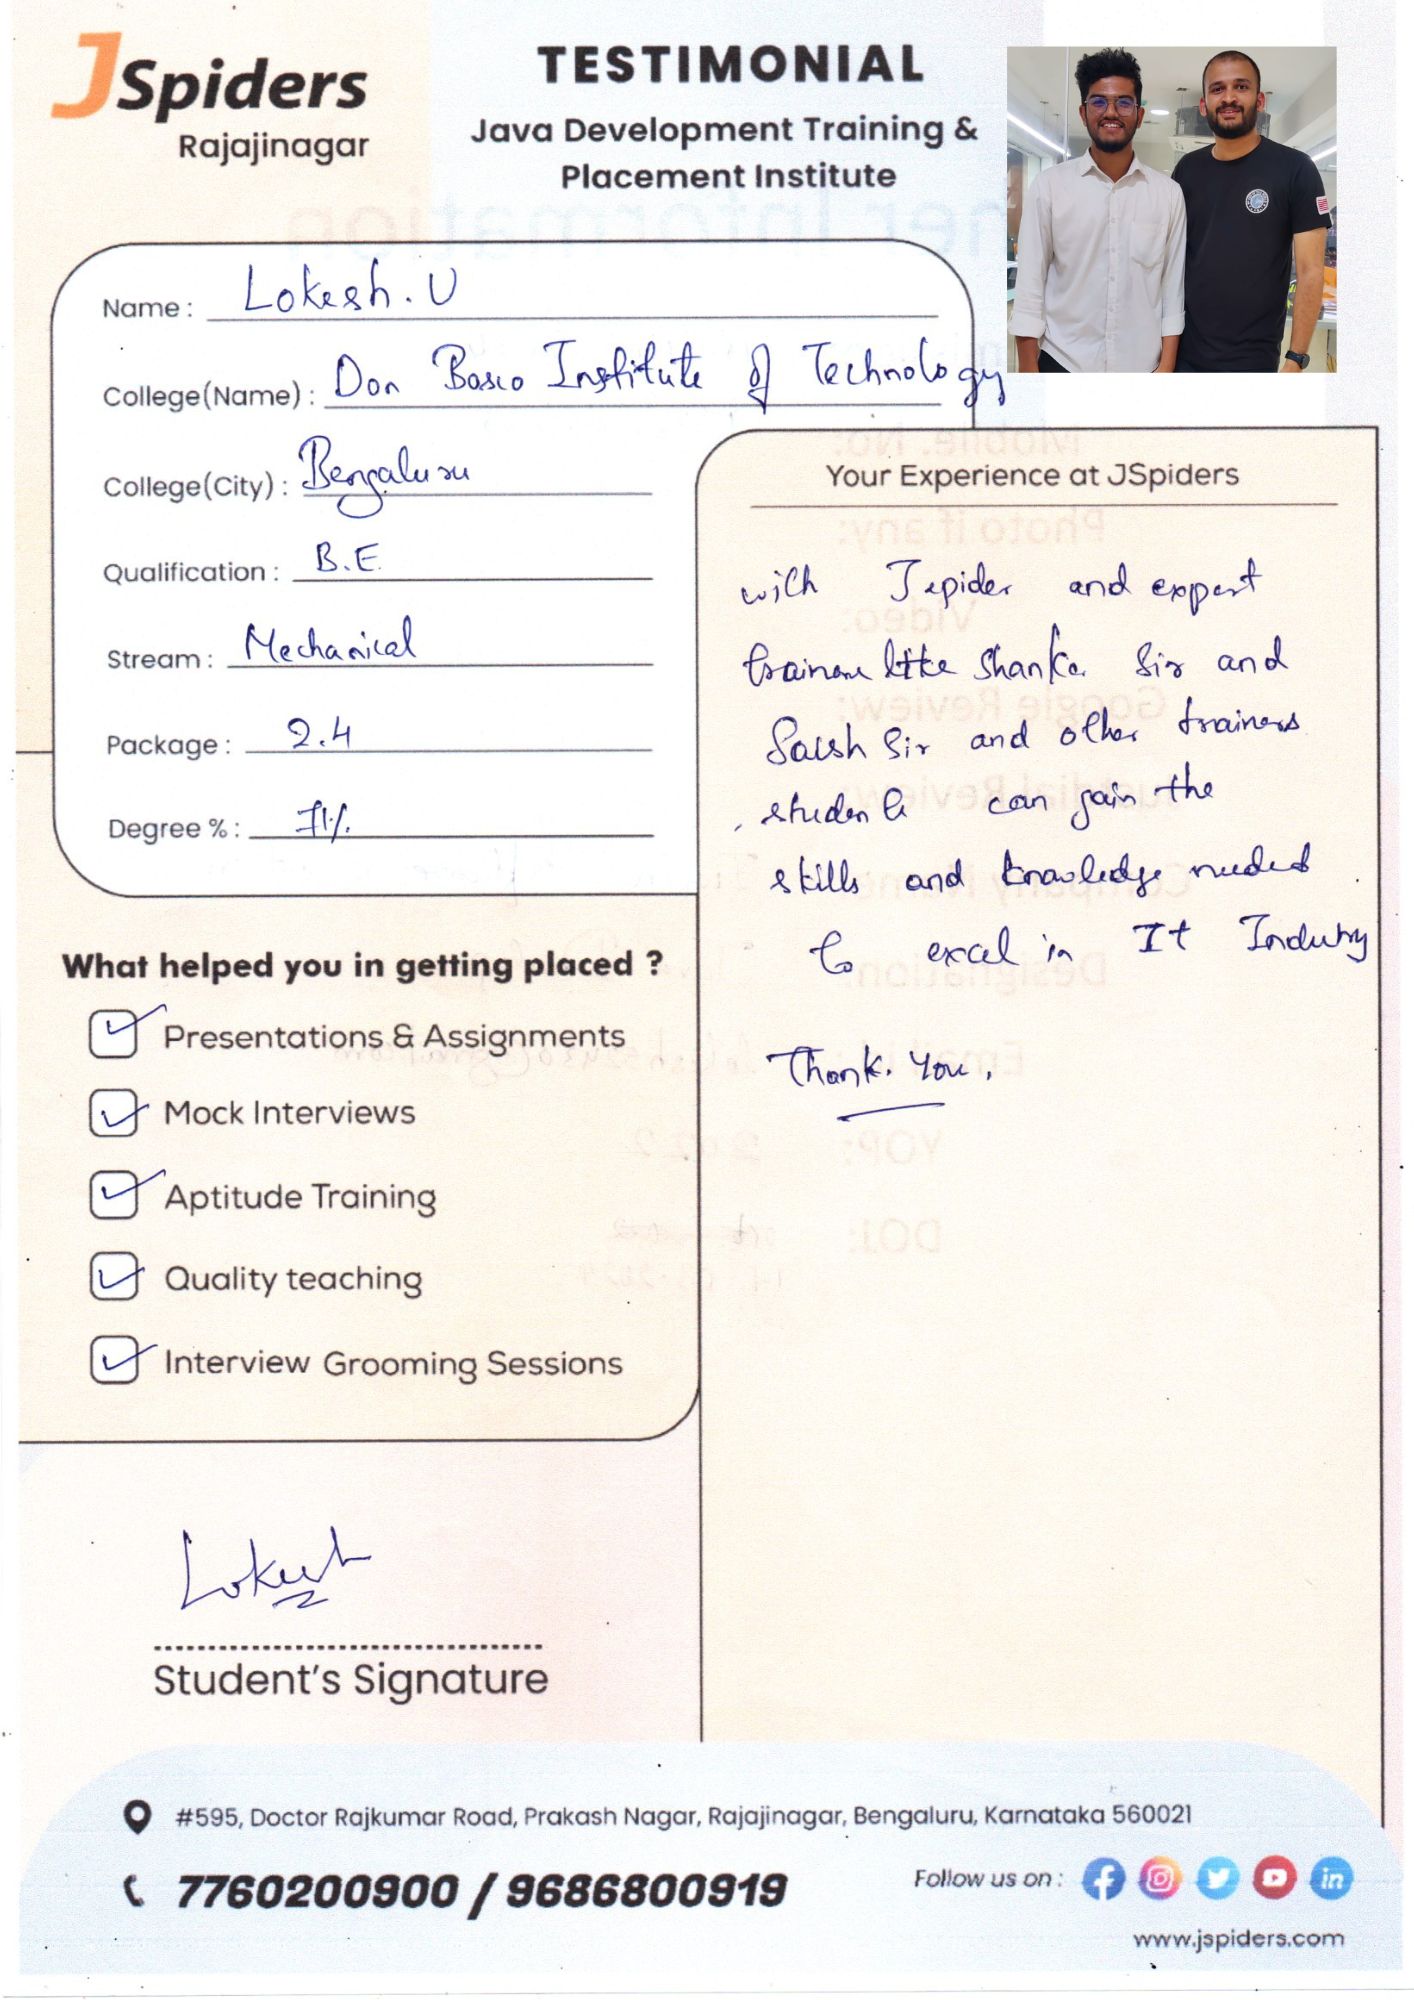 JSpiders
Rajajinagar
TESTIMONIAL
Java Development Training &
Placement Institute
Name : Lokesh. U
College(Name) : Don Bosco Institute of Technology
College(City) : Bengaluru
Qualification : B.E.
Stream : Mechanical
Package : 2.4
Degree % : 71%
What helped you in getting placed ?
Presentations & Assignments
Mock Interviews
Aptitude Training
Quality teaching
Interview Grooming Sessions
Lokesh
Student's Signature
Your Experience at JSpiders
with Jspider and expert
like Sir and
Sir and other trainers
can gain the
skills and knowledge needed
to excel in It Industry
Thank. You.
#595, Doctor Rajkumar Road, Prakash Nagar, Rajajinagar, Bengaluru, Karnataka 560021
7760200900 / 9686800919
Follow us on :
www.jspiders.com